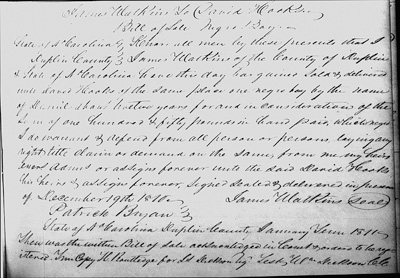 James Watkins To David Hooks
Bill of Sale Negro Boy
State of N Carolina } Know all men by these presents that I
Duplin County } James Watkins of the County of Duplin
& State of N Carolina have this day bargained Sold & delivered
unto David Hooks of the same place one negro boy by the name
of Daniel about years for and in consideration of the
sum of one hundred & fifty pounds in hand paid, which negro
I do warrant & defend from all person or persons laying any
right title claim or demand on the same, from me my heirs
Admrs or assigns forever unto the said David Hooks
his heirs & assigns forever. Signed Sealed & delivered in presence
of December 19th 1810. James Watkins Seal
Patrick Bryan
State of N Carolina Duplin County January Term 1811
Then was the within Bill of Sale acknowledged in Court & orderd to be
Copy for Dickson by Test Wm Dickson